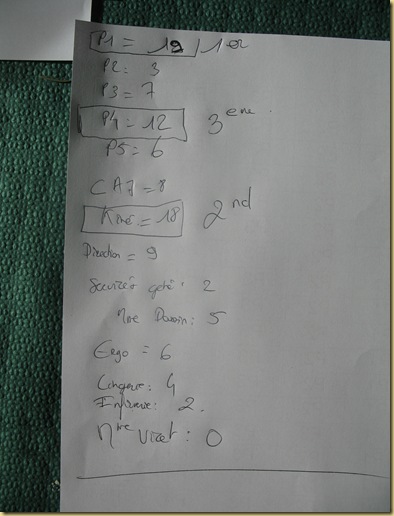 P1 = 19 / 1er
P2 : 3
P3 = 7
P4 = 12 3eme
P5 = 6
CAJ = 8
Kiné = 18 2nd
Direction = 9
Services géné : 2
Mme : 5
Ergo = 6
: 4
Infirmerie : 2.
Mme : 0